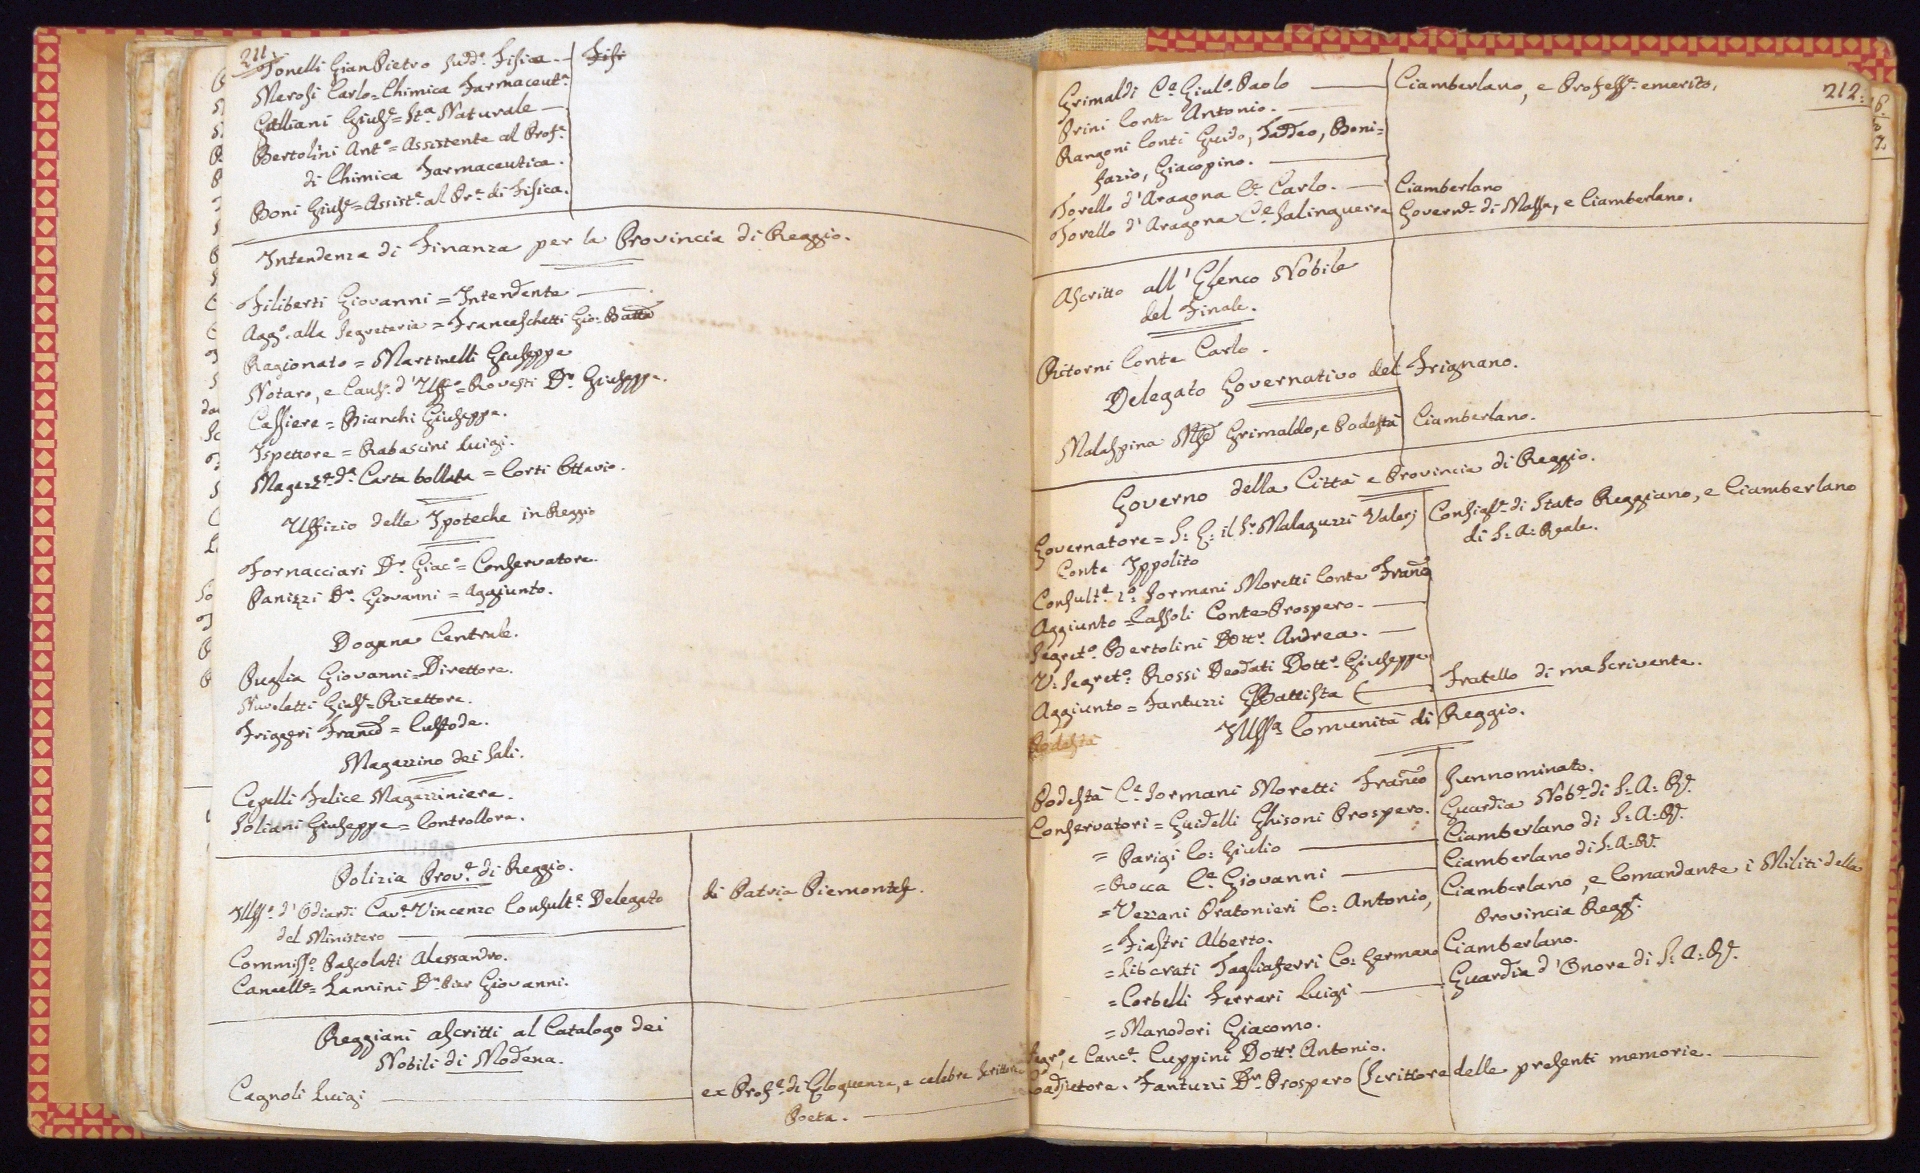 211.
Tonelli Gian Pietro Sudd.º Fisica. — Fisi
Merosi Carlo = Chimica Farmaceut.ª
Galliani Gius.e = St.ª Naturale —
Bertolini Ant.º = Assistente al Prof.e
di Chimica Farmaceutica.
Boni Gius.e = Assist.e al Pr.e di Fisica.
Intendenza di Finanza per la Provincia di Reggio.
Filiberti Giovanni = Intendente —
Agg.º alla Segreteria = Franceschetti Gio: Batta
Ragionato = Martinelli Giuseppe
Notaro, e Caus.º d'Uff.º = Rovesti D.r Giuseppe.
Cassiere = Bianchi Giuseppe.
Ispettore = Rabascini Luigi.
Magazz.e d.ª Carta bollata = Corti Ottavio.
Uffizio delle Ipoteche in Reggio
Fornacciari D.r Giac.º = Conservatore.
Panizzi D.r Giovanni = Aggiunto.
Dogana Centrale.
Puglia Giovanni = Direttore.
Nuvoletti Gius.e = Ricettore.
Friggeri Franc.º = Custode.
Magazzino dei Sali.
Cepelli Felice Magazziniere.
Soliani Giuseppe = Controllore.
Polizia Prov.e di Reggio.
Ill.mo d'Odiardi Cav.e Vincenzo Consult.e Delegato di Patria Piemontese.
del Ministero —
Commiss.º Pascolati Alessandro.
Cancell.e = Zannini D.r Pier Giovanni.
Reggiani ascritti al Catalogo dei
Nobili di Modena.
Cagnoli Luigi — ex Prof.e di Eloquenza, e celebre Scrittore
Poeta. —
212.
Grimaldi C.e Giul.º Paolo — Ciamberlano, e Profess.e emerito.
Prini Conte Antonio. —
Rangoni Conti Guido, Taddeo, Boni=
fazio, Giacopino. —
Torello d'Aragona C.e Carlo. — Ciamberlano
Torello d'Aragona C.e Salinguerra Govern.e di Massa, e Ciamberlano.
Ascritto all'Elenco Nobile
del Finale.
Ritorni Conte Carlo.
Delegato Governativo del Frignano.
Malaspina M.se Grimaldo, e Podestà Ciamberlano.
Governo della Città e Provincia di Reggio.
Governatore = S: E: il S.r Malaguzzi Valerj Consigl.e di Stato Reggiano, e Ciamberlano
Conte Ippolito di S: A: Reale.
Consult.e 1.º Sormani Moretti Conte Franc.º
Aggiunto = Cassoli Conte Prospero. —
Segret.º Bertolini Dott.r Andrea. —
V: Segret.º Rossi Deodati Dott.r Giuseppe
Aggiunto = Fantuzzi GBattista ( — Fratello di me Scrivente.
Ill.ma Comunità di Reggio.
Podestà
Podestà C.e Sormani Moretti Franc.º Sunnominato.
Conservatori = Guidelli Ghisoni Prospero. Guardia Nob.e di S: A: R.e
= Parigi Co: Giulio — Ciamberlano di S: A: R.e
= Rocca C.e Giovanni — Ciamberlano di S: A: R.e
= Vezzani Pratonieri Co: Antonio, Ciamberlano, e Comandante i Militi della
Provincia Regg.e
= Fiastri Alberto.
= Liberati Tagliaferri Co: Germano Ciamberlano.
= Corbelli Ferrari Luigi — Guardia d'Onore di S: A: R.e
= Manodori Giacomo.
Segr.º, e Canc.e Cuppini Dott.r Antonio.
Coadjutore. Fantuzzi D.r Prospero (Scrittore delle presenti memorie. —